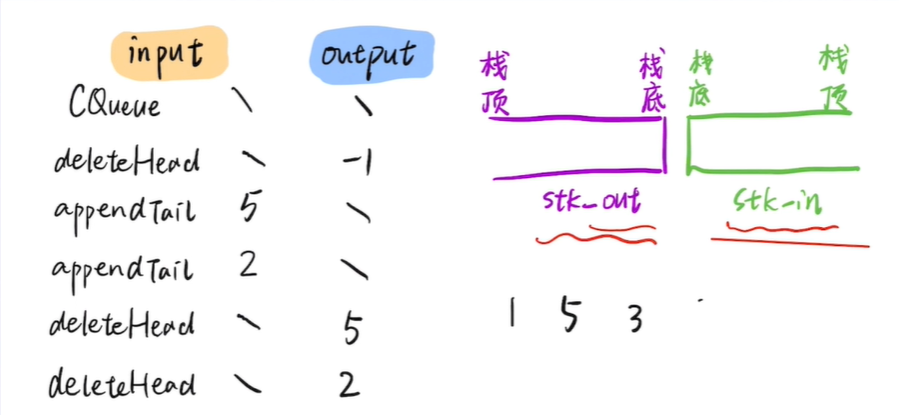 input output
CQueue \ \
deleteHead \ -1
appendTail 5 \
appendTail 2 \
deleteHead \ 5
deleteHead \ 2
栈顶 栈底 栈底 栈顶
stk_out stk_in
1 5 3